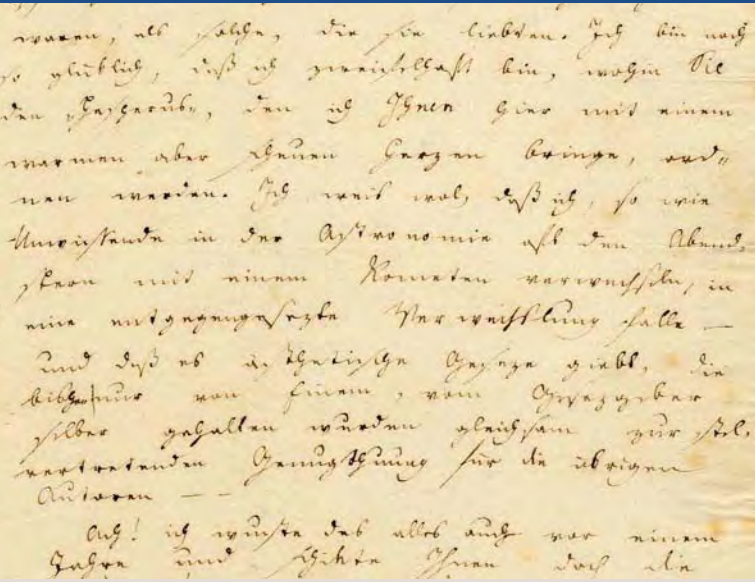 waren, als solche, die sie liebten. Ich bin noch
so glüklich, daß ich zweifelhaft bin, wohin Sie
den Hesperus, den ich Ihnen hier mit einem
warmen aber scheuen Herzen bringe, ord„
nen werden. Ich weis wol, daß ich, so wie
Unwissende in der Astronomie oft den Abend„
stern mit einem Kometen verwechseln, in
eine entgegengesezte Verwechslung falle —
und daß es ästhetische Geseze giebt, die
bisher nur von Einem, vom Gesezgeber
selber gehalten wurden gleichsam zur stel„
vertretenden Genugthuung für die übrigen
Autoren — —
Ach! ich wuste das alles auch vor einem
Jahre und schikte Ihnen doch die